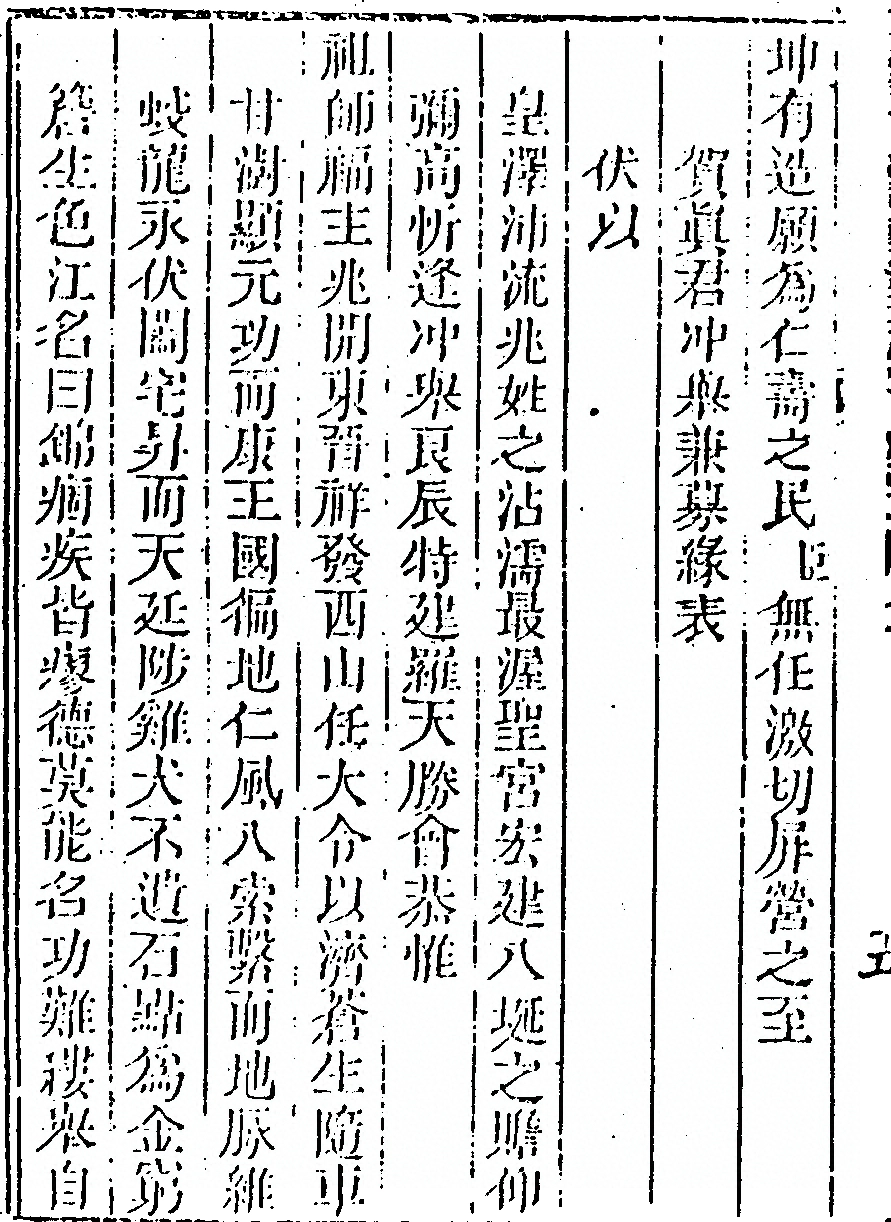 坤有造願為仁壽之民臣無任激切屏營之至
賀眞君冲舉兼募緣表
伏以
皇澤沛流兆姓之沾濡最渥聖宮宏建八埏之瞻仰
彌高忻逢冲舉良辰特建羅天勝會恭惟
祖師福主兆開東晉祥發西山任大令以濟蒼生隨車
甘澍顯元功而康王國徧地仁風八索繫而地脉維
蛟龍永伏闔宅昇而天延陟雞犬不遺石點為金窮
簷生色江名曰錦痼疾皆瘳德莫能名功難縷舉自
五